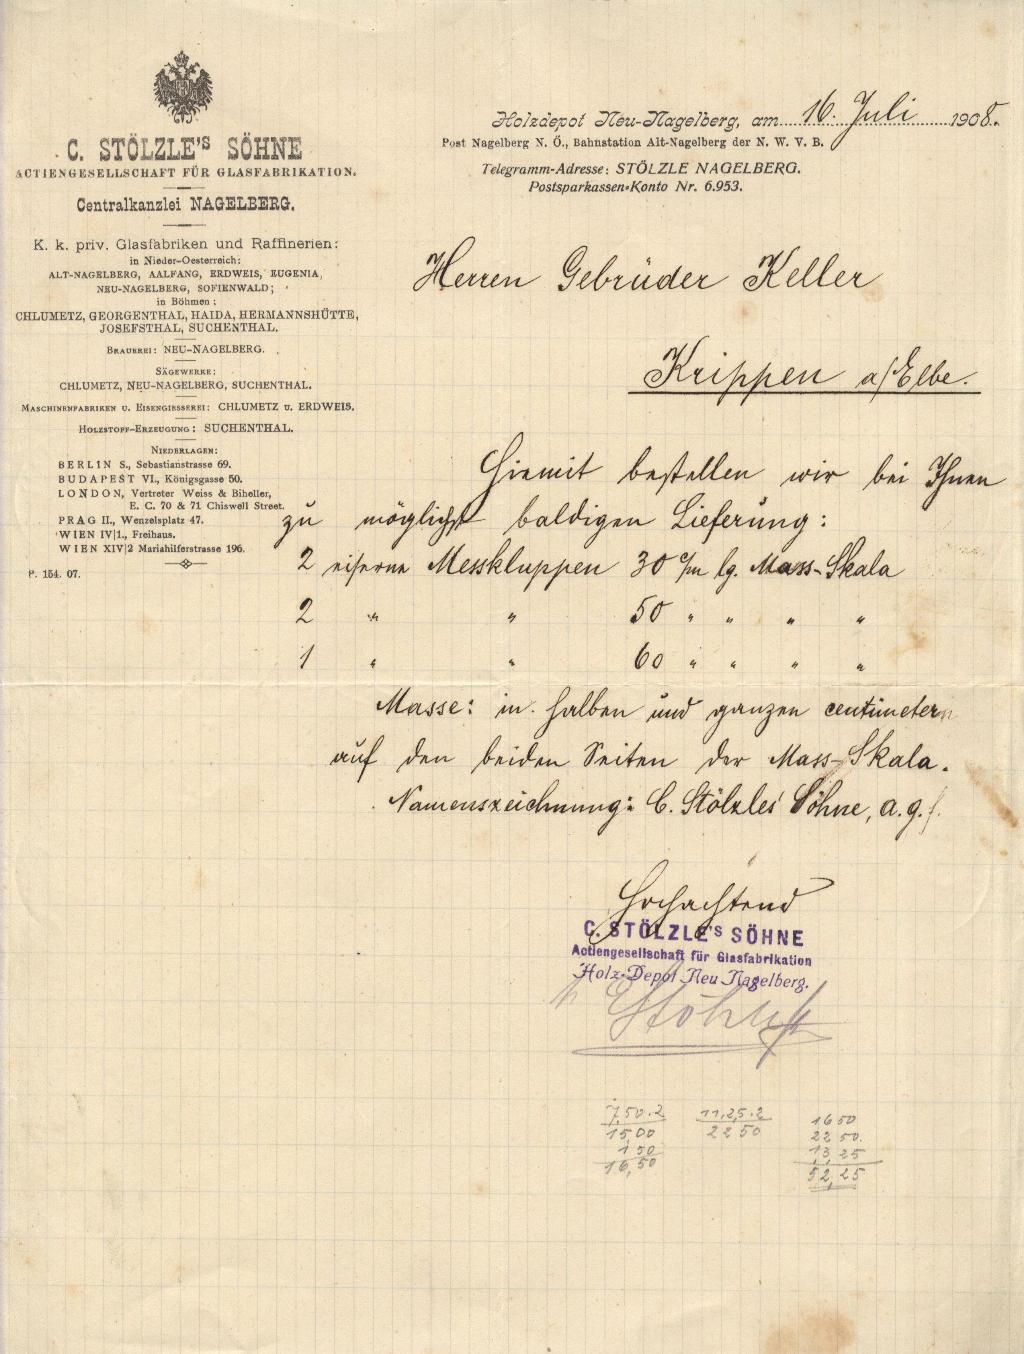 C. STÖLZLE'S SÖHNE
ACTIENGESELLSCHAFT FÜR GLASFABRIKATION.
Centralkanzlei NAGELBERG.
K. k. priv. Glasfabriken und Raffinerien:
in Nieder-Oesterreich:
ALT-NAGELBERG, AALFANG, ERDWEIS, EUGENIA,
NEU-NAGELBERG, SOFIENWALD;
in Böhmen:
CHLUMETZ, GEORGENTHAL, HAIDA, HERMANNSHÜTTE,
JOSEFSTHAL, SUCHENTHAL.
BRAUEREI: NEU-NAGELBERG.
SÄGEWERKE:
CHLUMETZ, NEU-NAGELBERG, SUCHENTHAL.
MASCHINENFABRIKEN U. EISENGIESSEREI: CHLUMETZ u. ERDWEIS.
HOLZSTOFF-ERZEUGUNG: SUCHENTHAL.
NIEDERLAGEN:
BERLIN S., Sebastianstrasse 69.
BUDAPEST VI., Königsgasse 50.
LONDON, Vertreter Weiss & Biheller,
E. C. 70 & 71 Chiswell Street.
PRAG II., Wenzelsplatz 47.
WIEN IV|1., Freihaus.
WIEN XIV|2 Mariahilferstrasse 196.
P. 154. 07.
Holzdepot Neu-Nagelberg, am 16. Juli 1908.
Post Nagelberg N. Ö., Bahnstation Alt-Nagelberg der N. W. V. B.
Telegramm-Adresse: STÖLZLE NAGELBERG.
Postsparkassen-Konto Nr. 6.953.
Herren Gebrüder Keller
Krippen a/Elbe.
Hiemit bestellen wir bei Ihnen
zu möglichst baldigen Lieferung:
2 eiserne Messkluppen 30 c/m lg. Mass-Skala
2 " " 50 " " " "
1 " " 60 " " " "
Masse: in halben und ganzen centimetern
auf den beiden Seiten der Mass-Skala.
Namenszeichnung: C. Stölzles Söhne, a. g. f.
Hochachtend
C. STÖLZLE'S SÖHNE
Actiengesellschaft für Glasfabrikation
Holz-Depot Neu Nagelberg.
7,50.2 11,25.2 16 50
15,00 22 50 22 50.
1 50 13,25
16,50 52,25